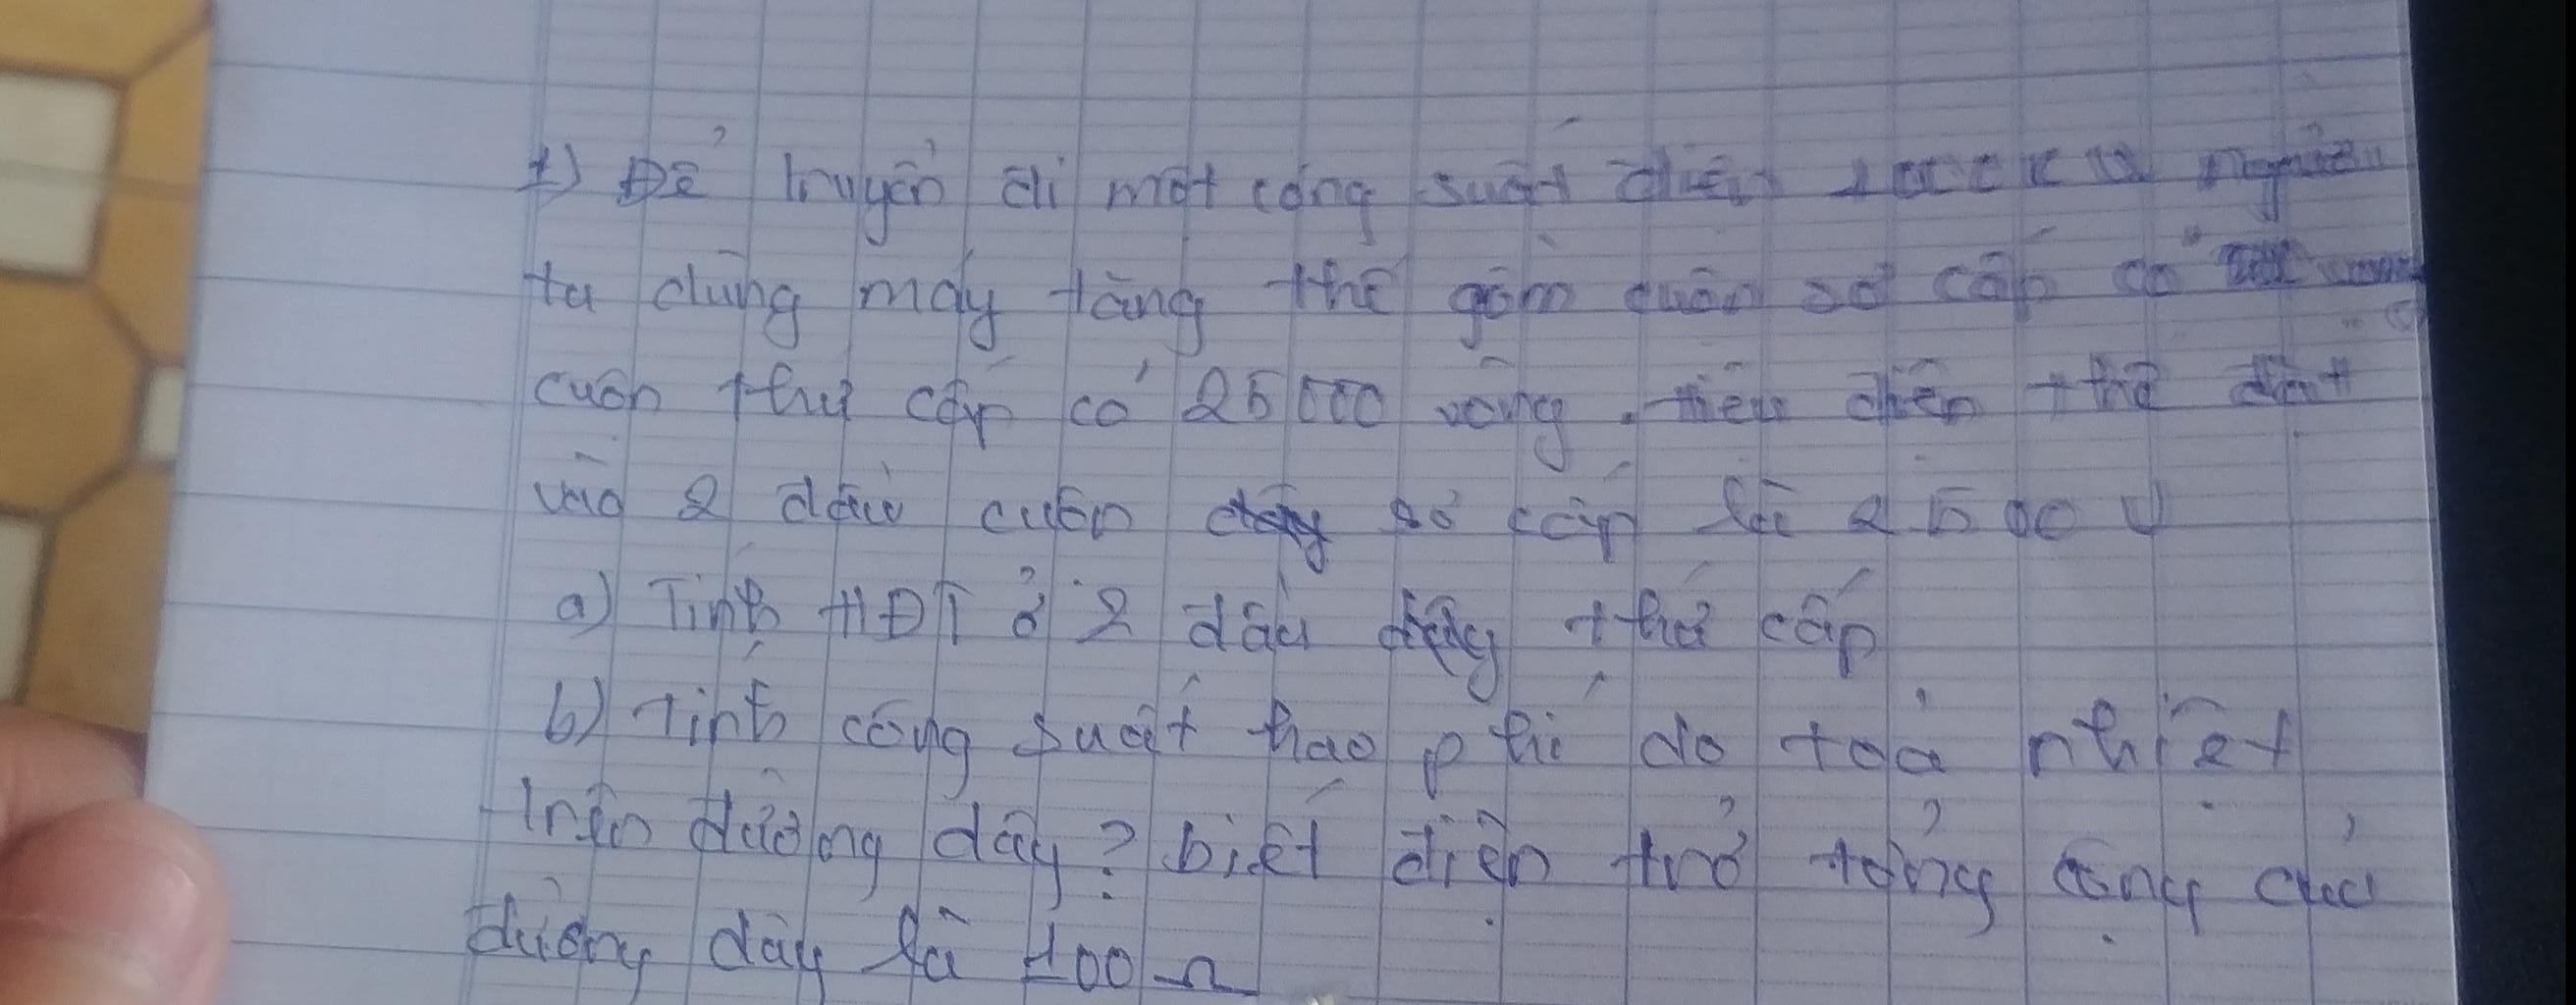 1) Để truyền đi một công suất điện 1000KW người
ta dùng máy tăng thế gồm cuộn sơ cấp có
cuộn thứ cấp có 25000 vòng, hiệu điện thế đặt
vào 2 đầu cuộn dây sơ cấp là 2500V
a) Tính HĐT ở 2 đầu dây thứ cấp
b) Tính công suất hao phí do toả nhiệt
trên đường dây? biết điện trở tổng cộng của
đường dây là 100Ω